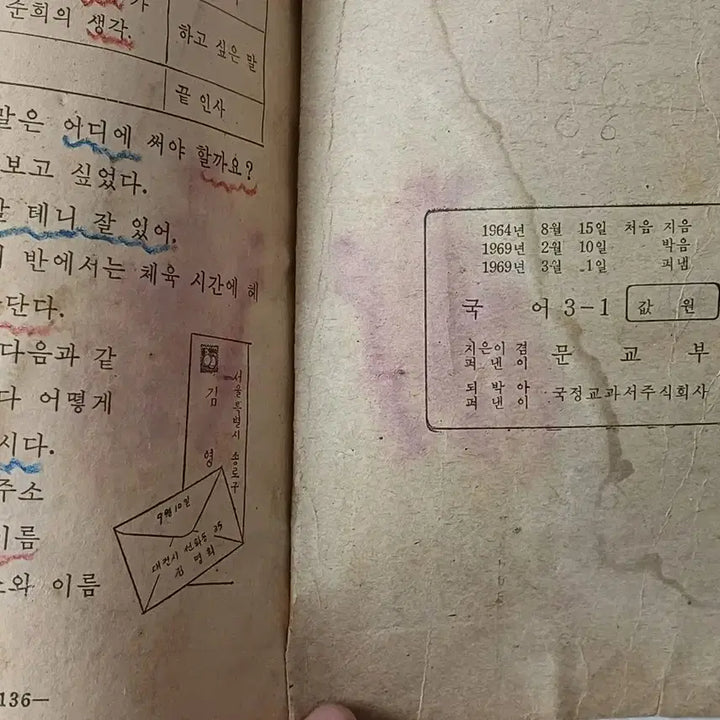 가
순희의 생각.
하고 싶은 말
끝 인사
말은 어디에 써야 할까요?
보고 싶었다.
테니 잘 있어,
반에서는 체육 시간에 헤
단다.
다음과 같
다 어떻게
시다.
주소
이름
와 이름
서울특별시 종로구
김 영
9월 10일
대전시 선화동 35
김 명희
136—
1964년 8월 15일 처음 지음
1969년 2월 10일 박음
1969년 3월 1일 펴냄
국 어 3-1
값 원
지은이 겸 펴낸이 문 교 부
되박아 펴낸이 국정교과서주식회사
66